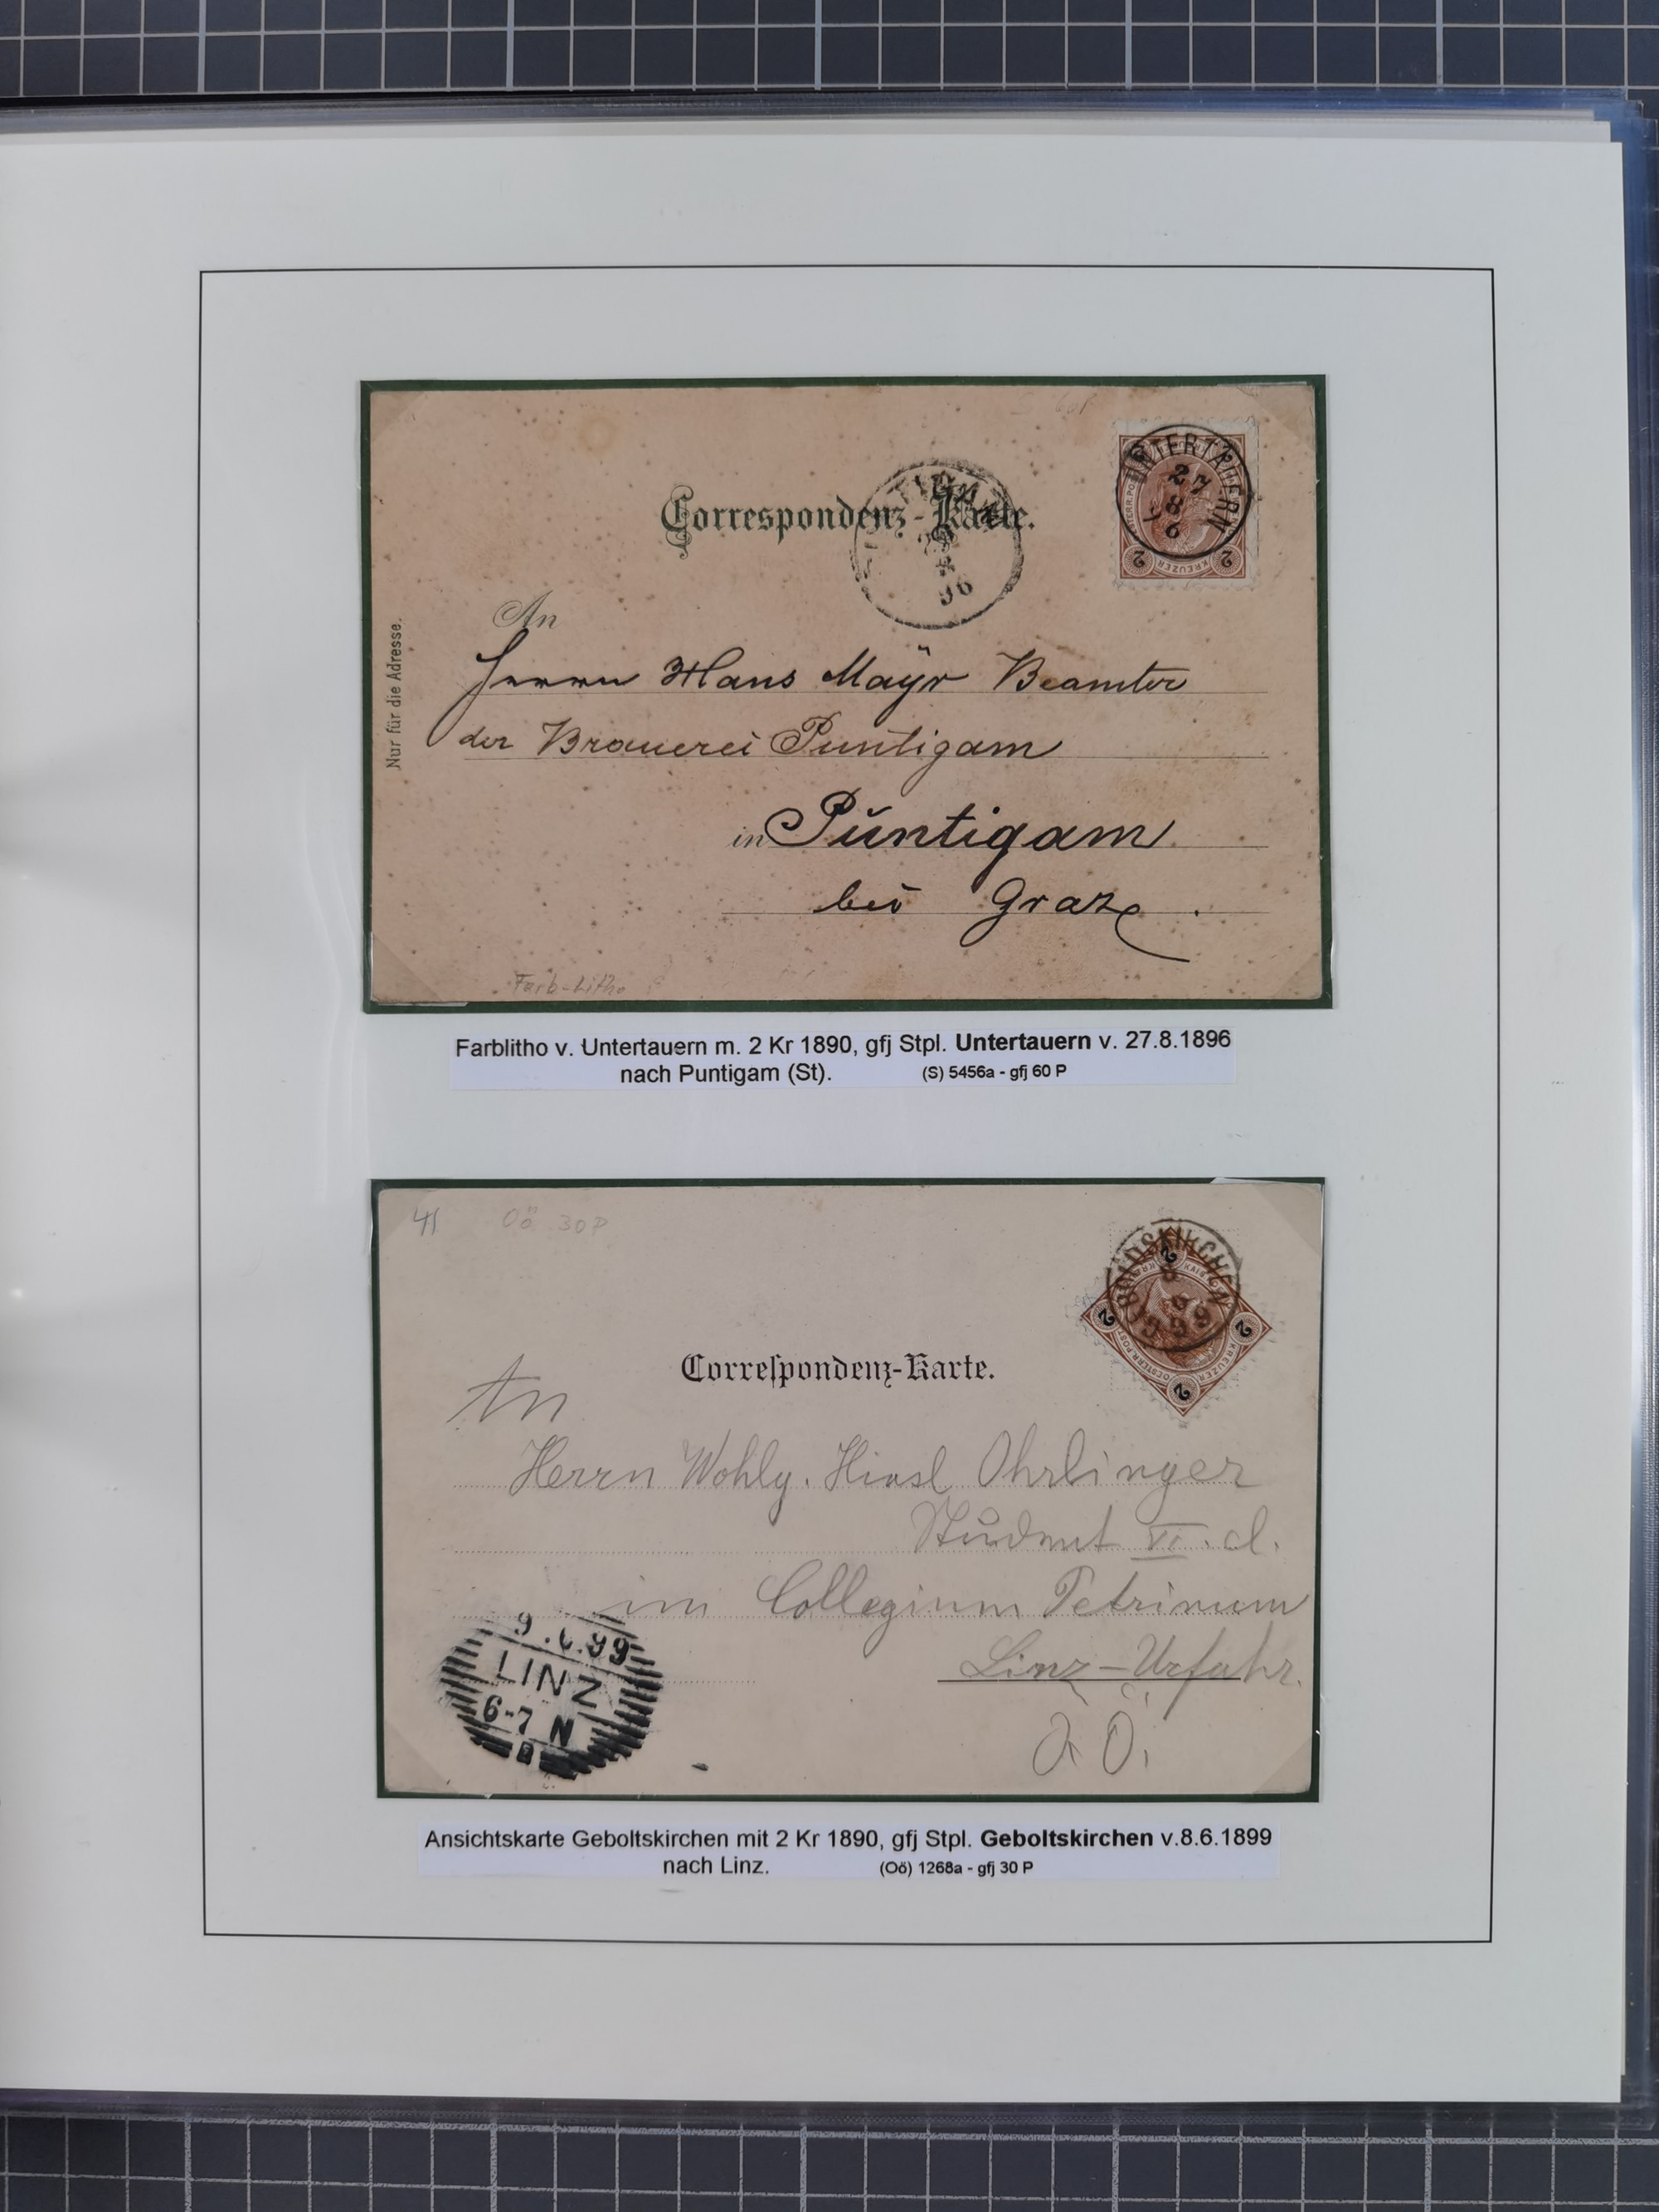 Correspondenz-Karte.
UNTERTAUERN
27
8
6
2 KREUZER 2
96
An
Nur für die Adresse.
Herrn Hans Mayr Beamter
der Brauerei Puntigam
in Puntigam
bei Graz.
Farb-Litho
Farblitho v. Untertauern m. 2 Kr 1890, gfj Stpl. Untertauern v. 27.8.1896
nach Puntigam (St). (S) 5456a - gfj 60 P
41 Oö 30 P
2 2 2 2
KREUZER
OESTERR.POST
Correſpondenz-Karte.
An
Herrn Wohlg. Ohrlinger
Student VI. cl.
im Collegium Petrinum
Linz-Urfahr.
O.Ö.
9.6.99
LINZ
6-7 N
Ansichtskarte Geboltskirchen mit 2 Kr 1890, gfj Stpl. Geboltskirchen v.8.6.1899
nach Linz. (Oö) 1268a - gfj 30 P